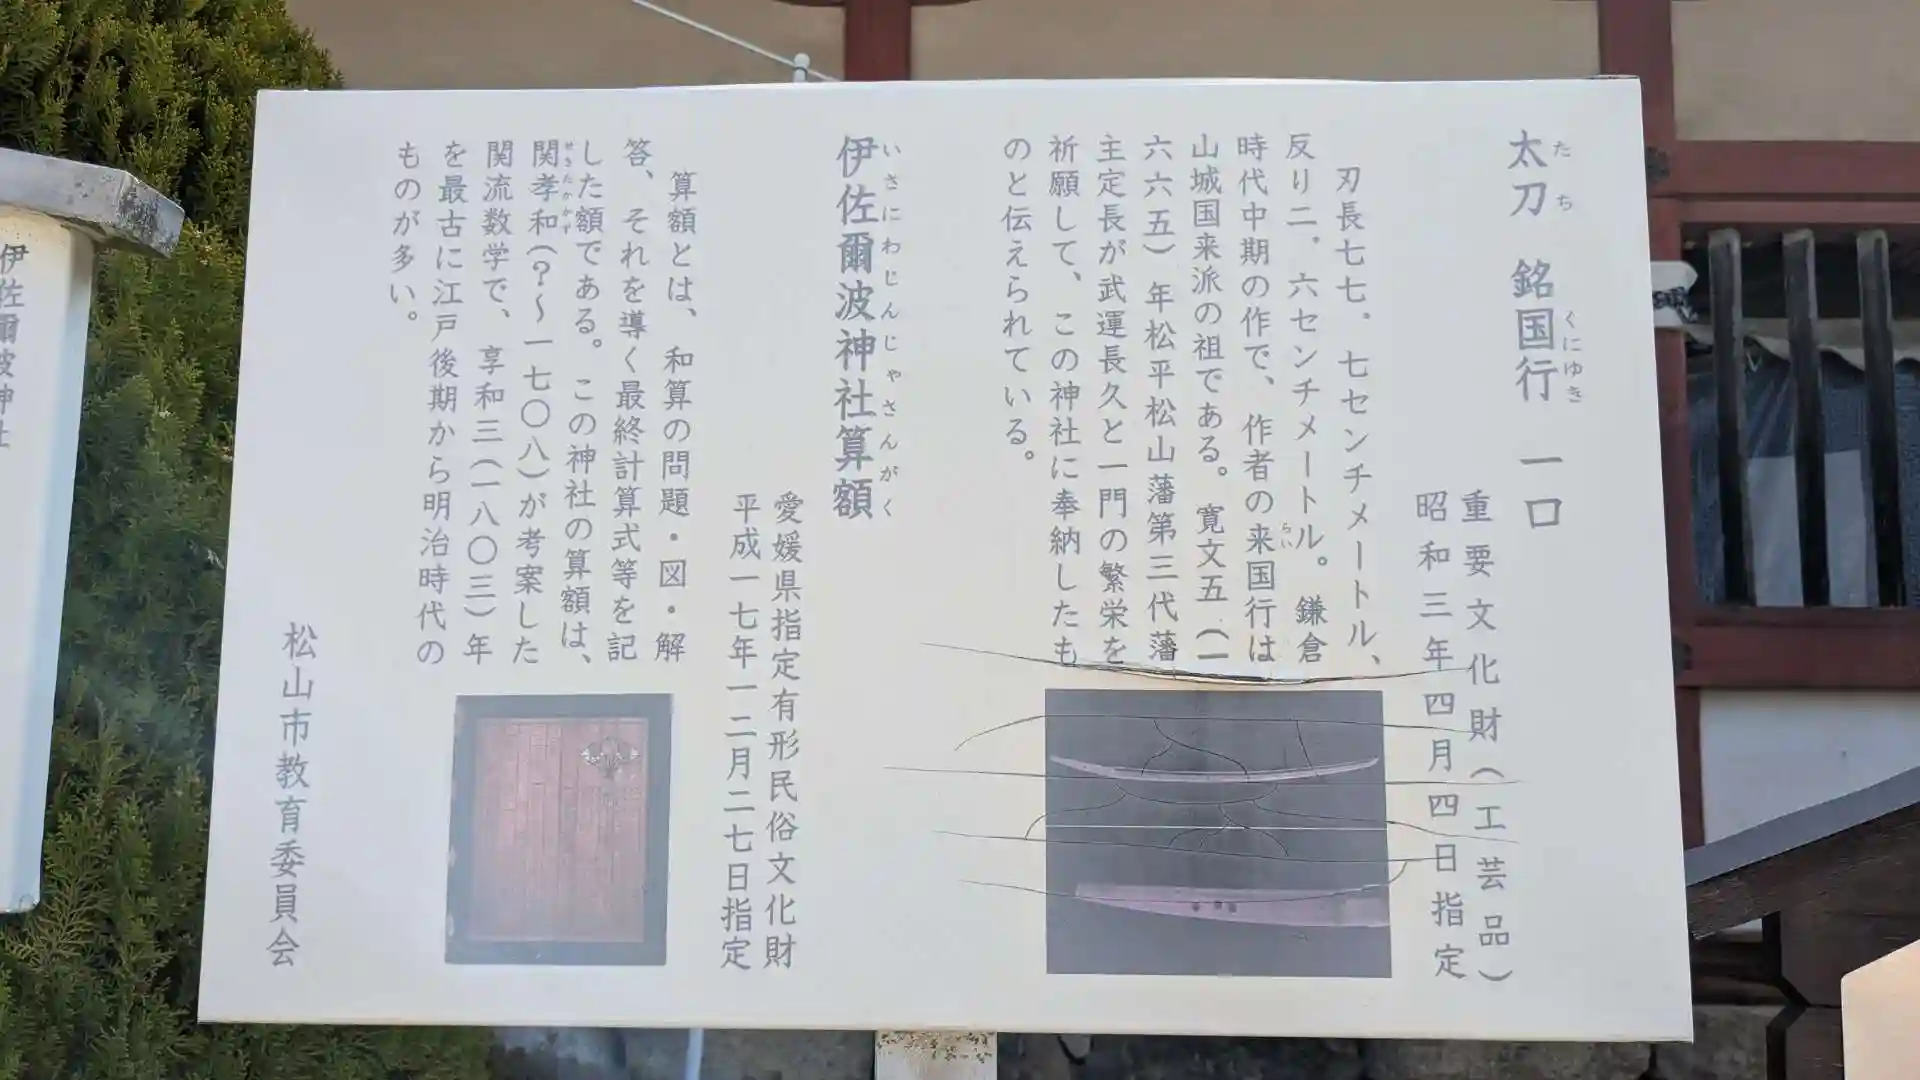 太刀 銘国行 一口
たち
くにゆき
重要文化財(工芸品)
昭和三年四月四日指定
刃長七七.七センチメートル、
反り二.六センチメートル。鎌倉
時代中期の作で、作者の来国行は
らい
山城国来派の祖である。寛文五(一
六六五)年松平松山藩第三代藩
主定長が武運長久と一門の繁栄を
祈願して、この神社に奉納したも
のと伝えられている。
伊佐爾波神社算額
いさにわじんじゃさんがく
愛媛県指定有形民俗文化財
平成一七年一二月二七日指定
算額とは、和算の問題・図・解
答、それを導く最終計算式等を記
した額である。この神社の算額は、
関孝和(?〜一七〇八)が考案した
せきたかかず
関流数学で、享和三(一八〇三)年
を最古に江戸後期から明治時代の
ものが多い。
松山市教育委員会
伊佐爾波神社